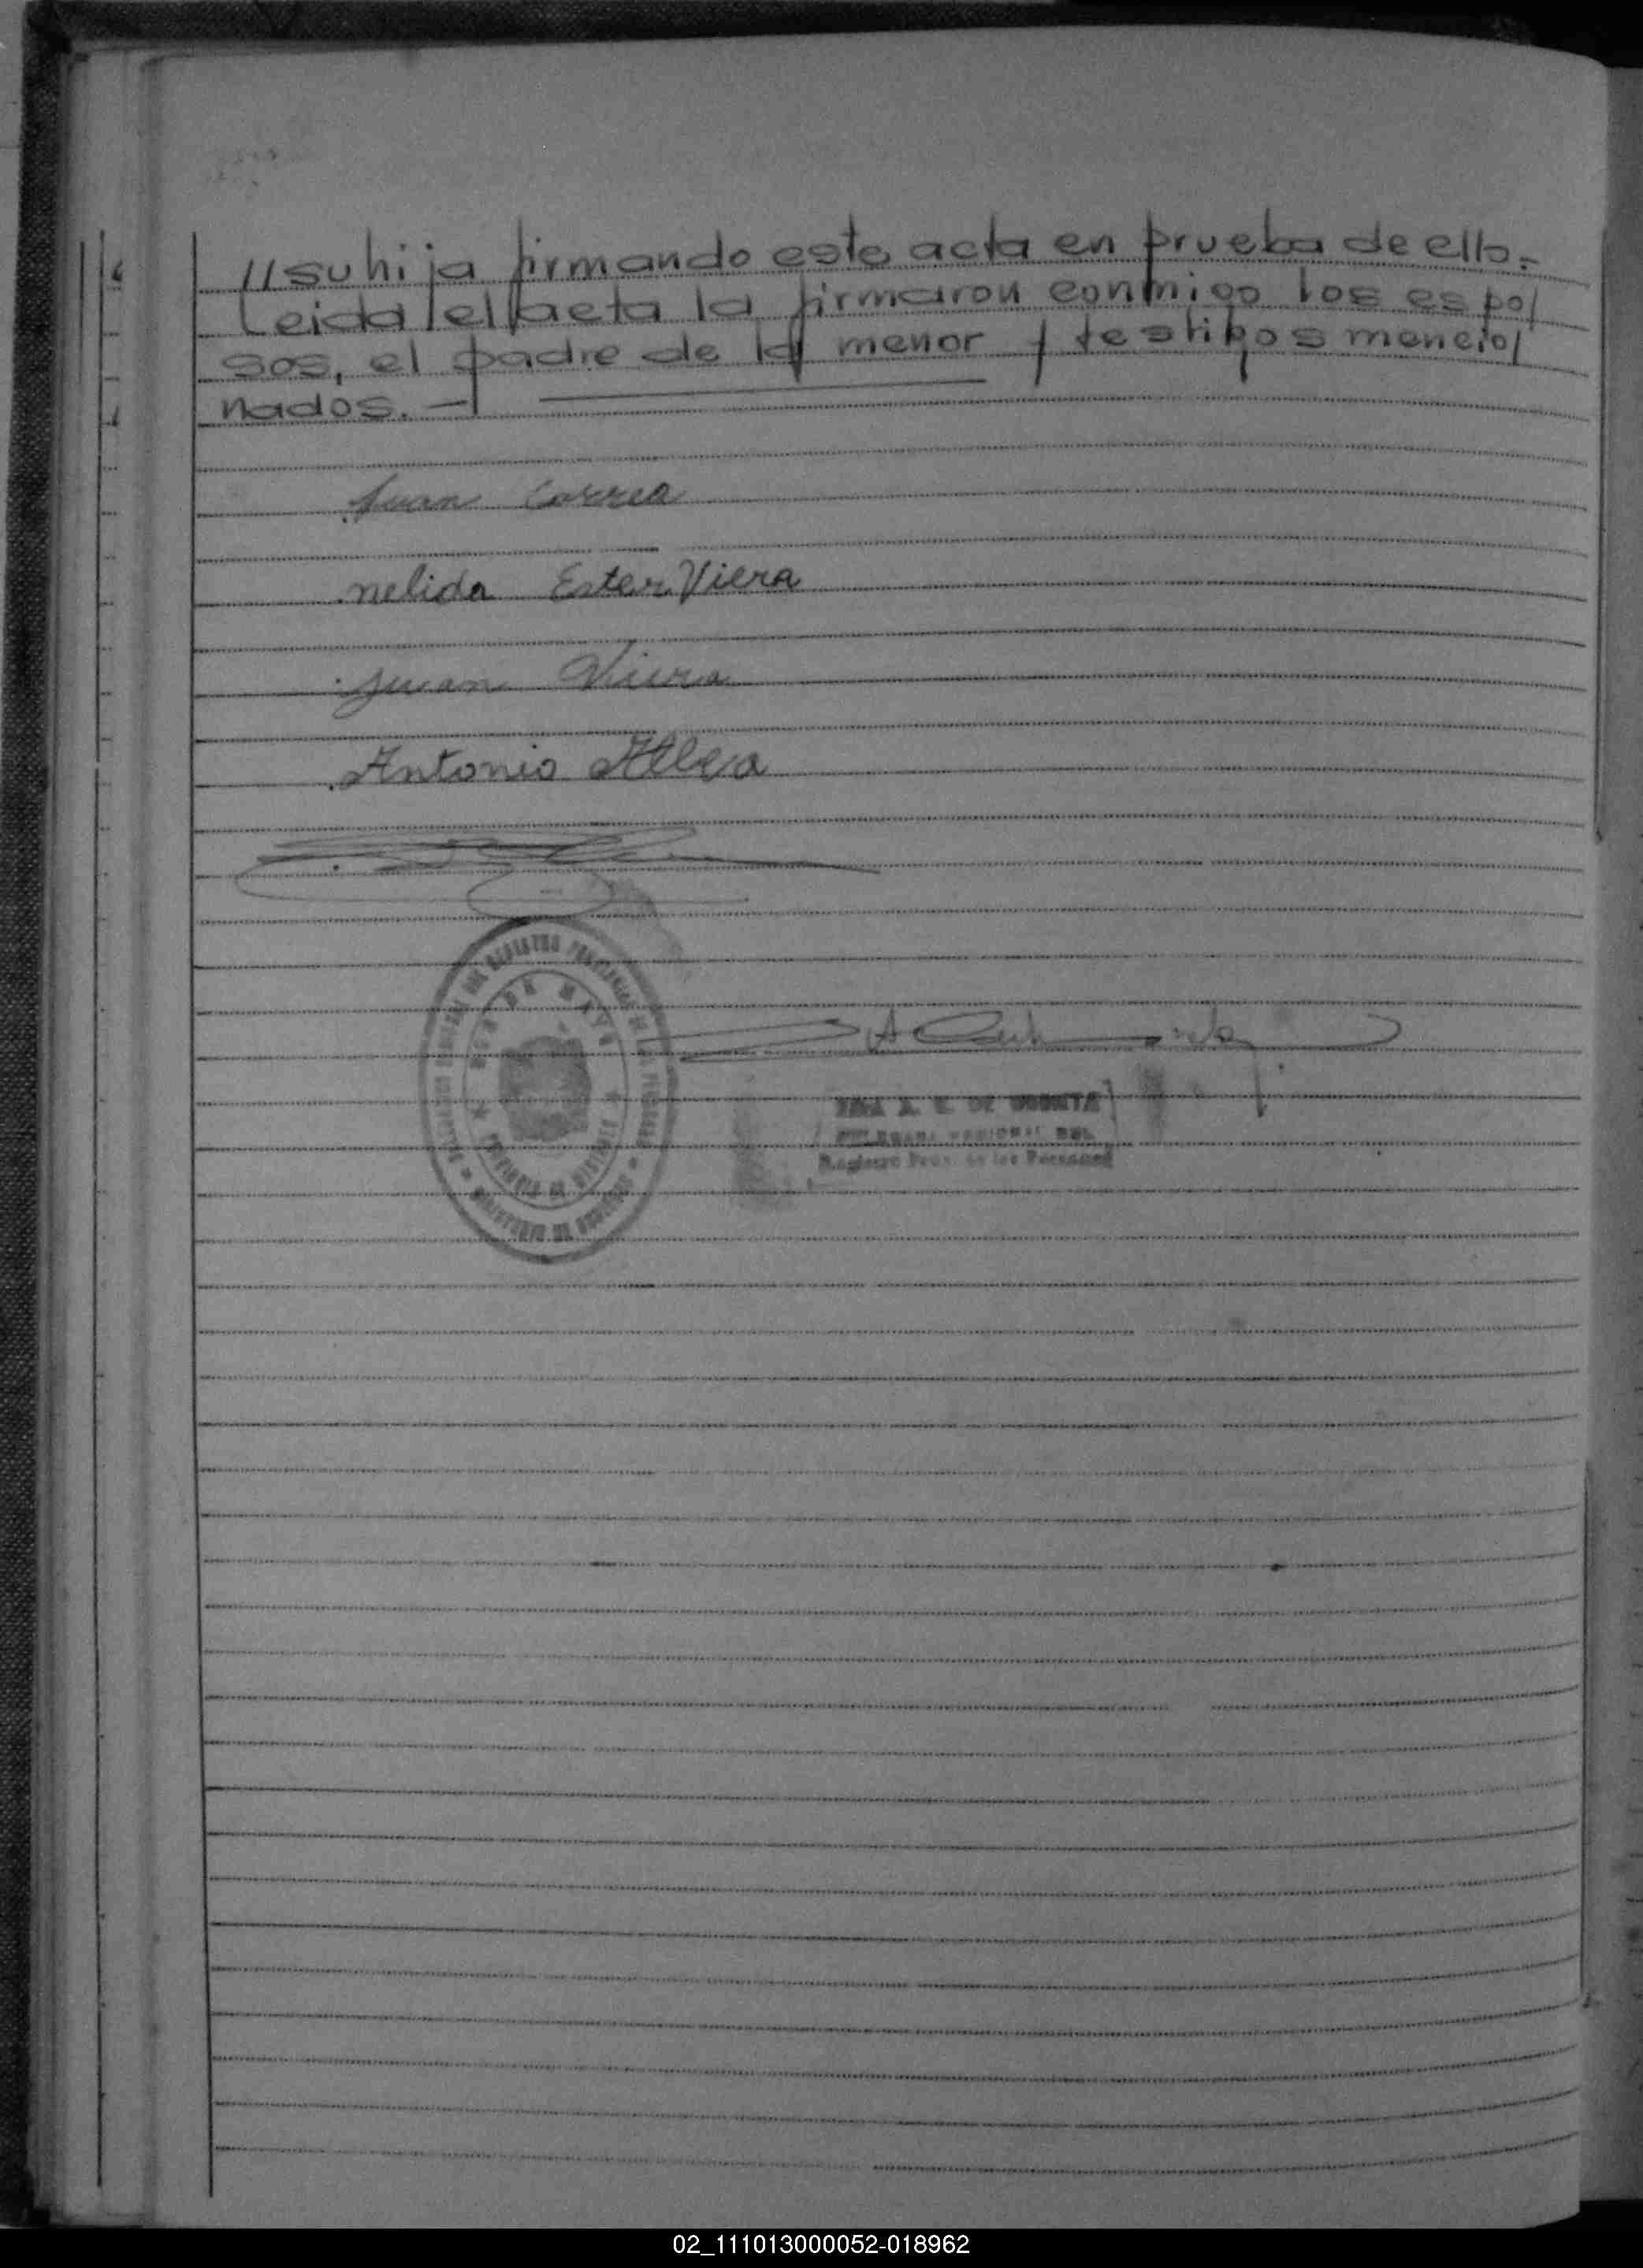 //su hija firmando este acta en prueba de ello.-
Leida /el/ acta la firmaron conmigo los espo/
sos, el padre de la menor y testigos mencio/
nados.-
Juan Correa
nelida Ester Viera
Juan Viera
Antonio Alba
DE MAYO
PROVINCIA DE MISIONES
DE
REGIONAL DEL
Registro Prov. de las Personas
02_111013000052-018962